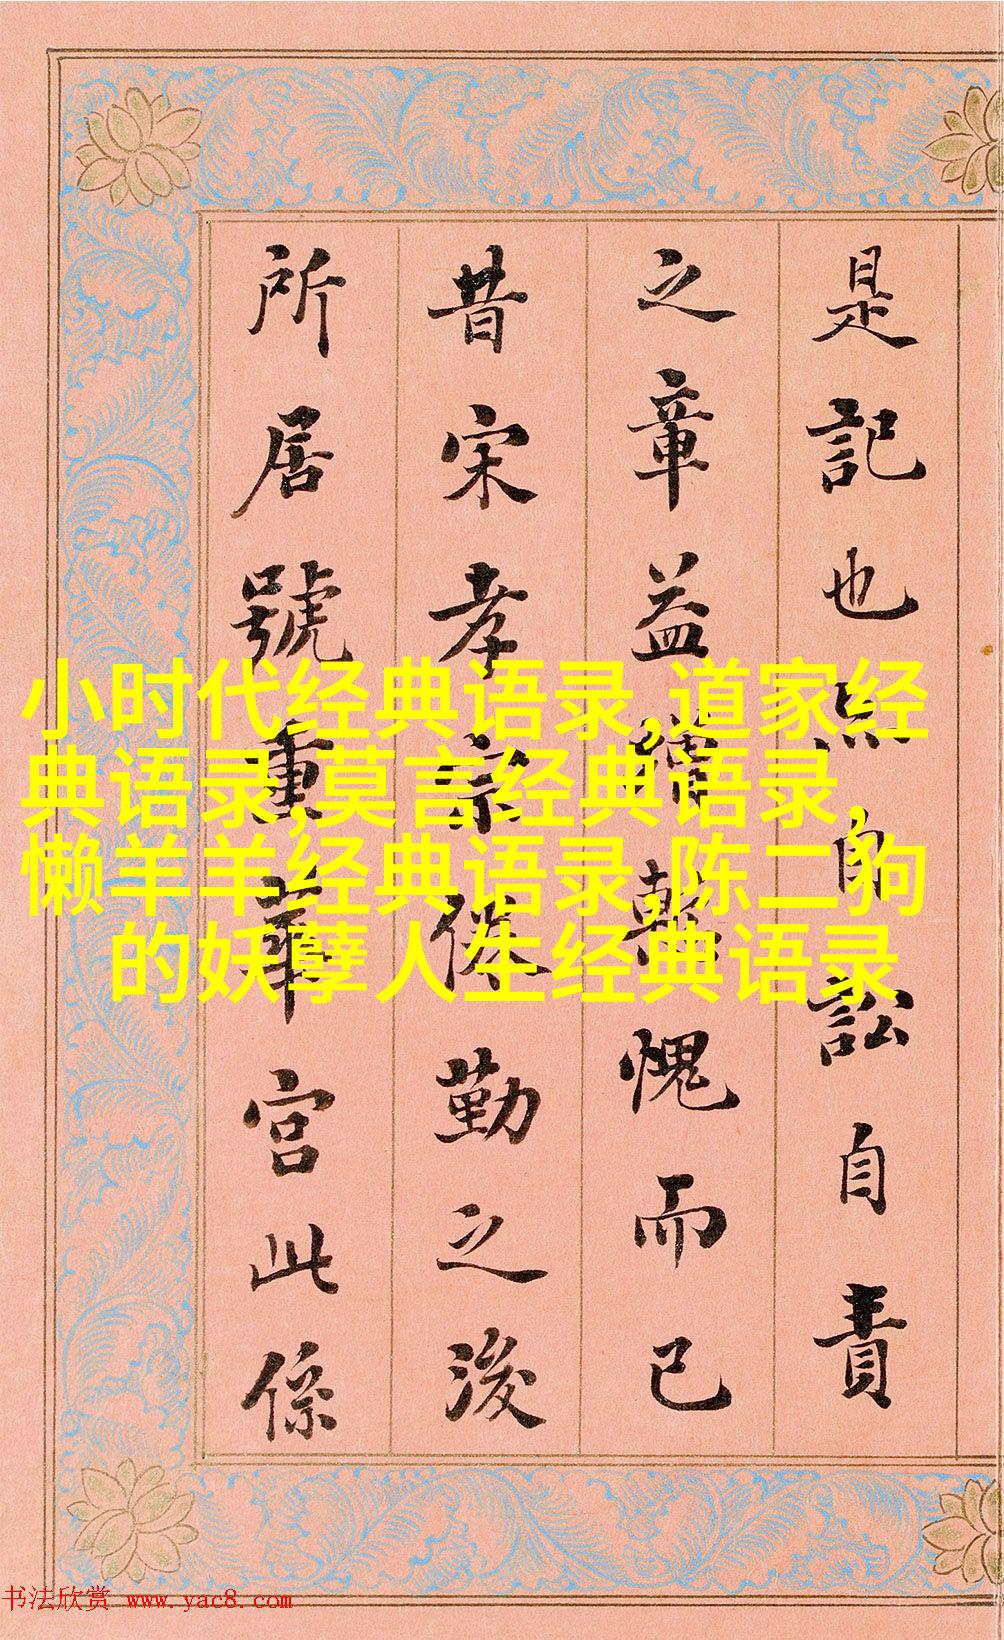 是記也自訟自責
之章益增慙愧而已
昔宋孝宗倦勤之後
所居號重華宮此係
小时代经典语录,道家经
典语录,莫言经典语录,
懒羊羊经典语录,陈二狗
的妖孽人生经典语录
书法欣赏 www.yac8.com